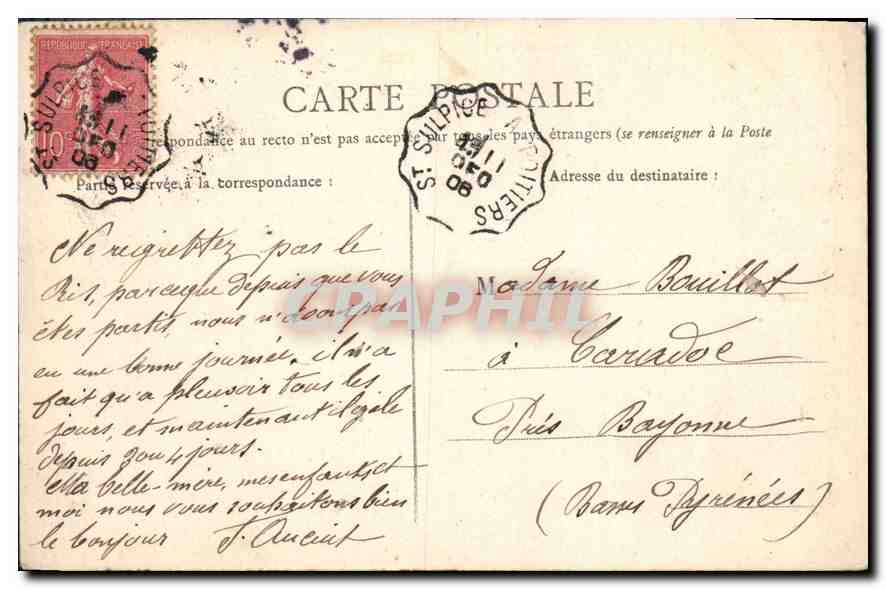 REPUBLIQUE FRANÇAISE
10
ST SULPICE A POITIERS
11
DEC
06
CARTE POSTALE
respondance au recto n'est pas acceptée par tous les pays étrangers (se renseigner à la Poste
Partie réservée à la correspondance :
Adresse du destinataire :
Ne regrettez pas le
parceque depuis que vous
êtes partis, nous n'avons pas
eu une bonne journée, il n'a
fait qu'a pleuvoir tous les
jours, et maintenant il gèle
depuis 3 ou 4 jours.
Ma belle-mère, mes enfants et
moi nous vous souhaitons bien
le bonjour
Madame Bouillot
à Caradoc
Près Bayonne
(Basses Pyrénées)
CPAPHIL